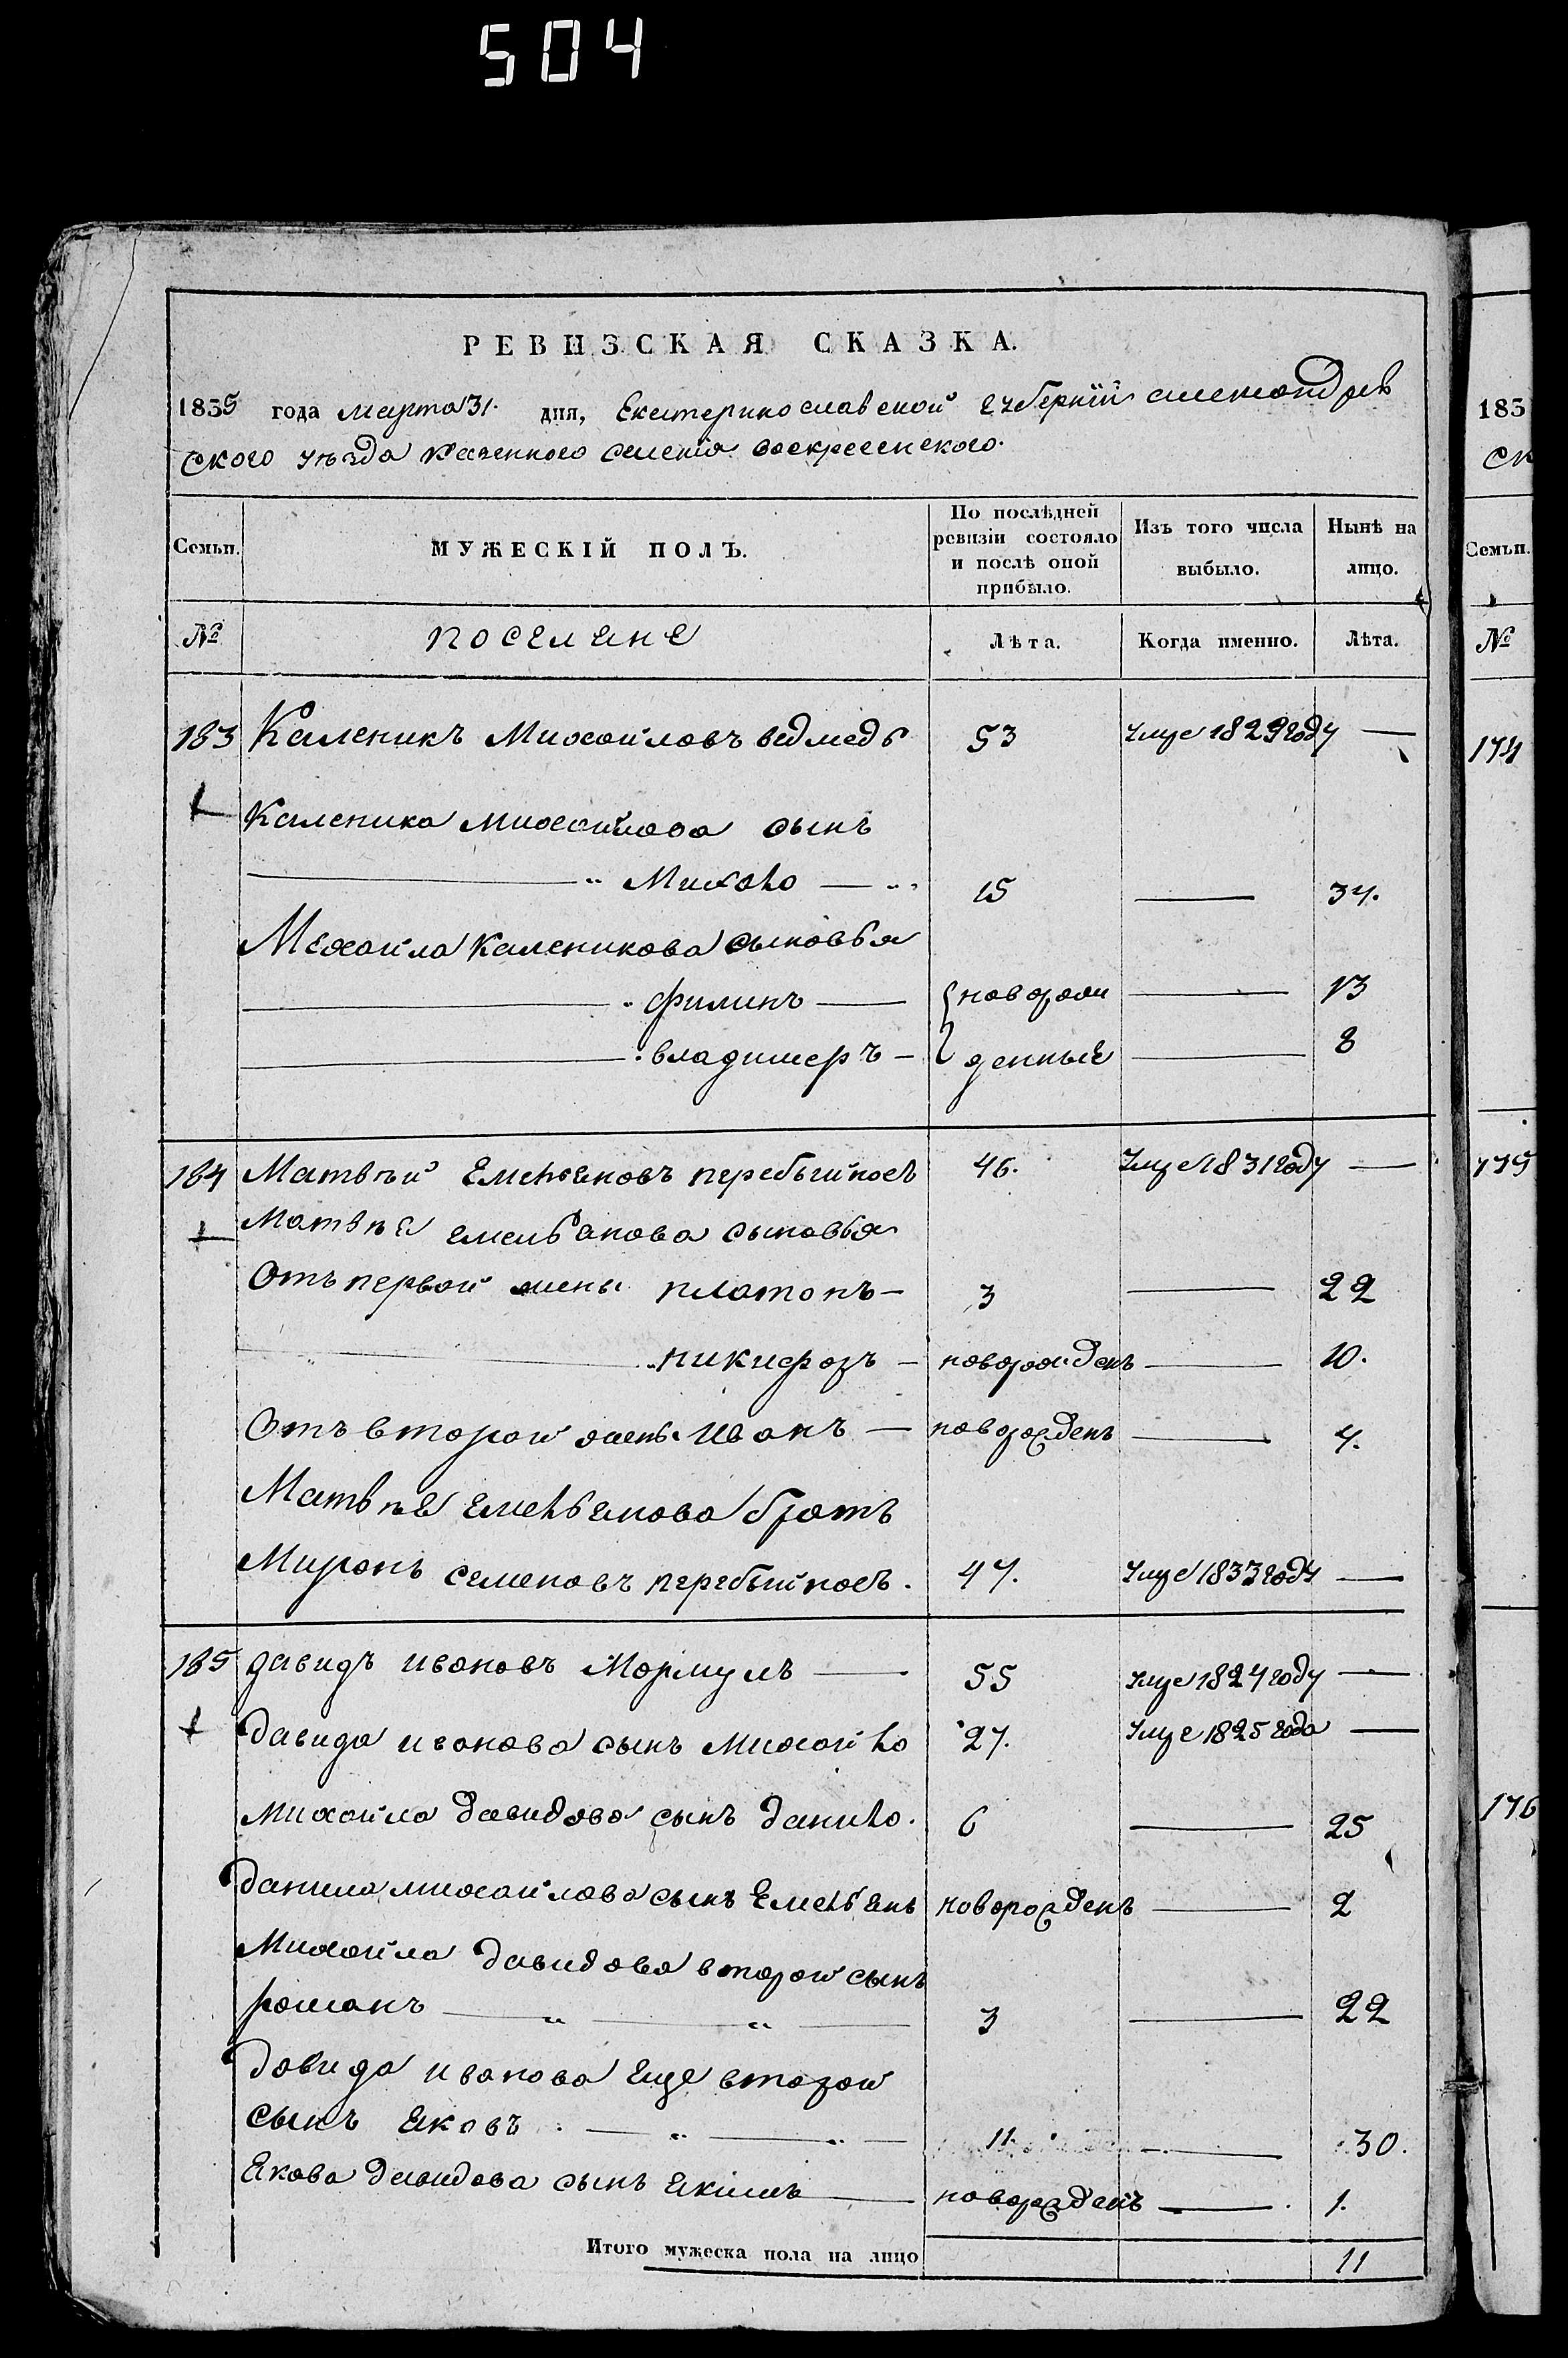 504
РЕВИЗСКАЯ СКАЗКА.
1835 года марта 31. дня, Екатеринославской губерніи александров
ского уѣзда казенного селенія воскресенского.
Семьи.
МУЖЕСКІЙ ПОЛЪ.
По послѣдней ревизіи состояло и послѣ оной прибыло.
Изъ того числа выбыло.
Нынѣ на лицо.
№
поселяне
Лѣта.
Когда именно.
Лѣта.
183 Каленикъ Михайловъ ведмедь 53 Умре 1829 году —
Каленика михайлова сынъ
— " Михайло — " 15 — 34.
Михайла Каленикова сыновья
— " филипъ — новорож — 13
— " владимеръ — денные — 8
184 Матвѣй Емельяновъ перебыйносъ 46. Умре 1831 году —
Матвѣя емельянова сыновья
Отъ первой жены платонъ — 3 — 22
— " никифоръ — новорожденъ — 10.
Отъ второй жены Иванъ — новорожденъ — 4.
Матвѣя Емельянова братъ
Миронъ семеновъ перебыйносъ. 47. Умре 1833 году —
185 давидъ ивановъ Мормуль — 55 Умре 1824 году —
давида иванова сынъ михайло 27. Умре 1825 года —
михайла давидова сынъ данило. 6 — 25
данила михайлова сынъ Емельянъ новорожденъ — 2
Михайла давидова второй сынъ
романъ — " — " — 3 — 22
давида иванова еще второй
сынъ яковъ. — " — " — 11. — 30.
Якова давидова сынъ якимъ — новорожденъ — 1.
Итого мужеска пола на лицо 11
183
ск
Семьи.
№
174
175
176